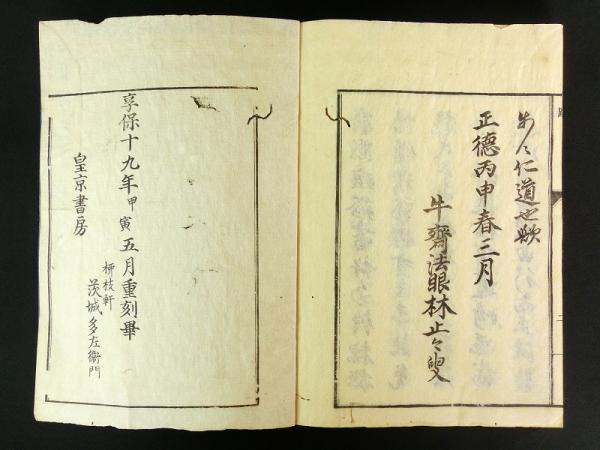 仁道也歟
正德丙申春三月
牛齋法眼林止々叟
享保十九年甲寅五月重刻畢
皇京書房
柳枝軒
茨城多左衛門